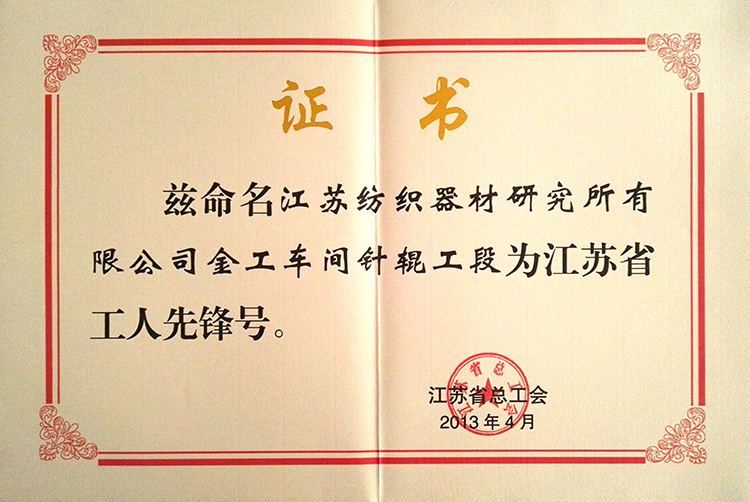 证书
兹命名江苏纺织器材研究所有
限公司金工车间针辊工段为江苏省
工人先锋号。
江苏省总工会
江苏省总工会
2013年4月